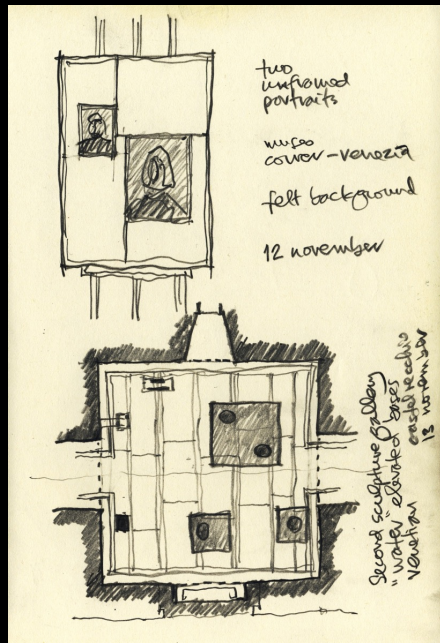 two
unframed
portraits
museo
correr-venezia
felt background
12 november
Second sculpture gallery
"water" elevated bases
venetian castelvecchio
13 november